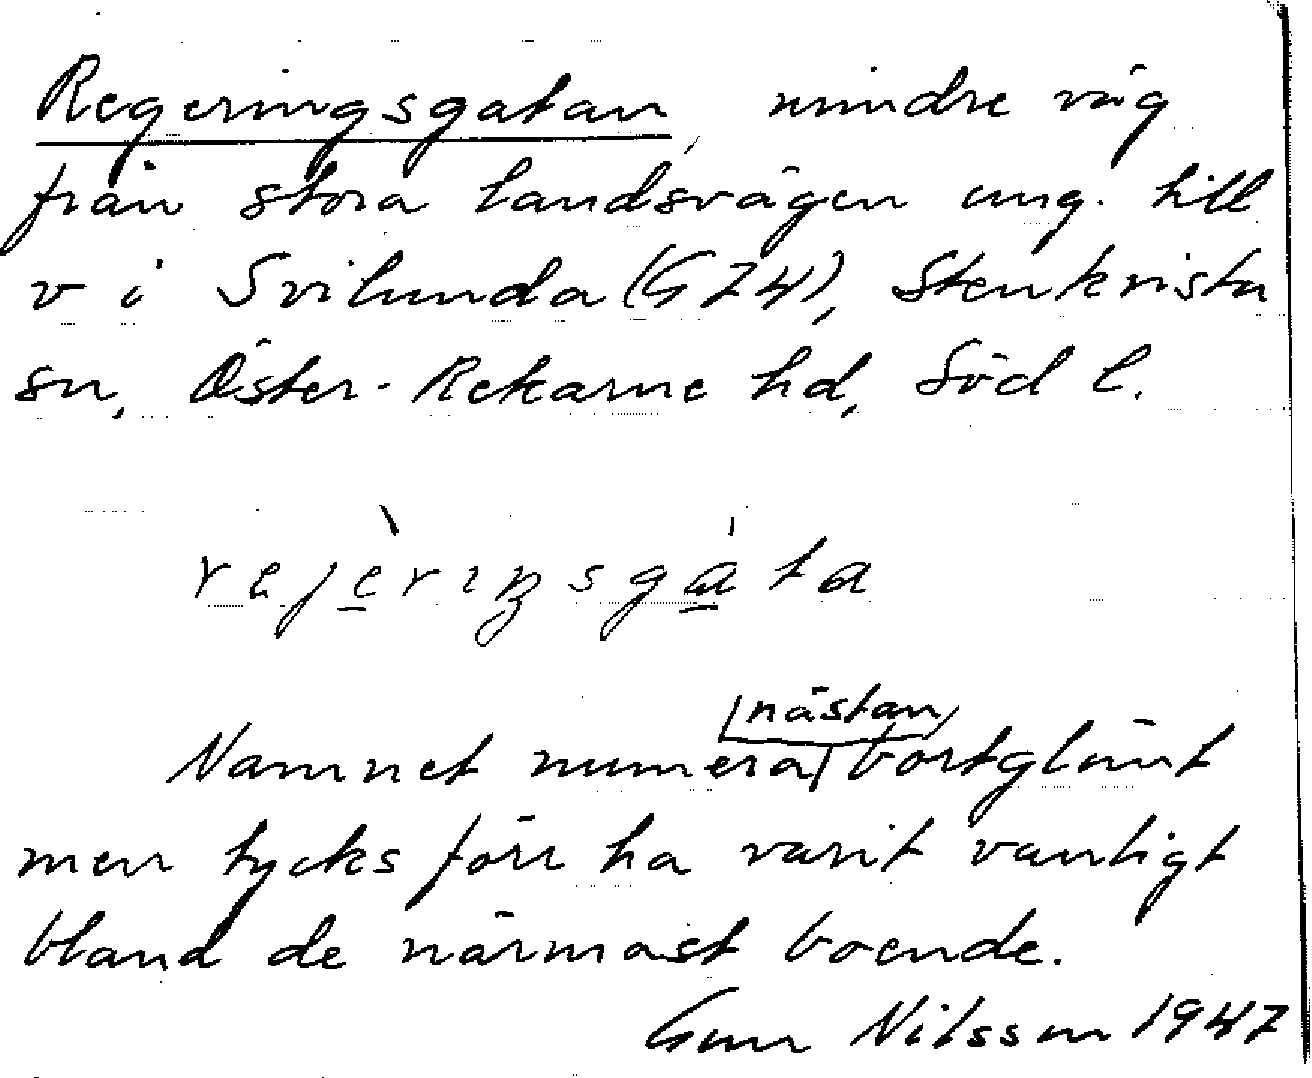 Regeringsgatan, mindre väg
från stora landsvägen ung. till
v i Svilunda (G74), Stenkvista
sn, Öster-Rekarne hd, Söd l.
rejèriŋsgàta
nästan
Namnet numera bortglömt
men tycks förr ha varit vanligt
bland de närmast boende.
Gun Nilsson 1947